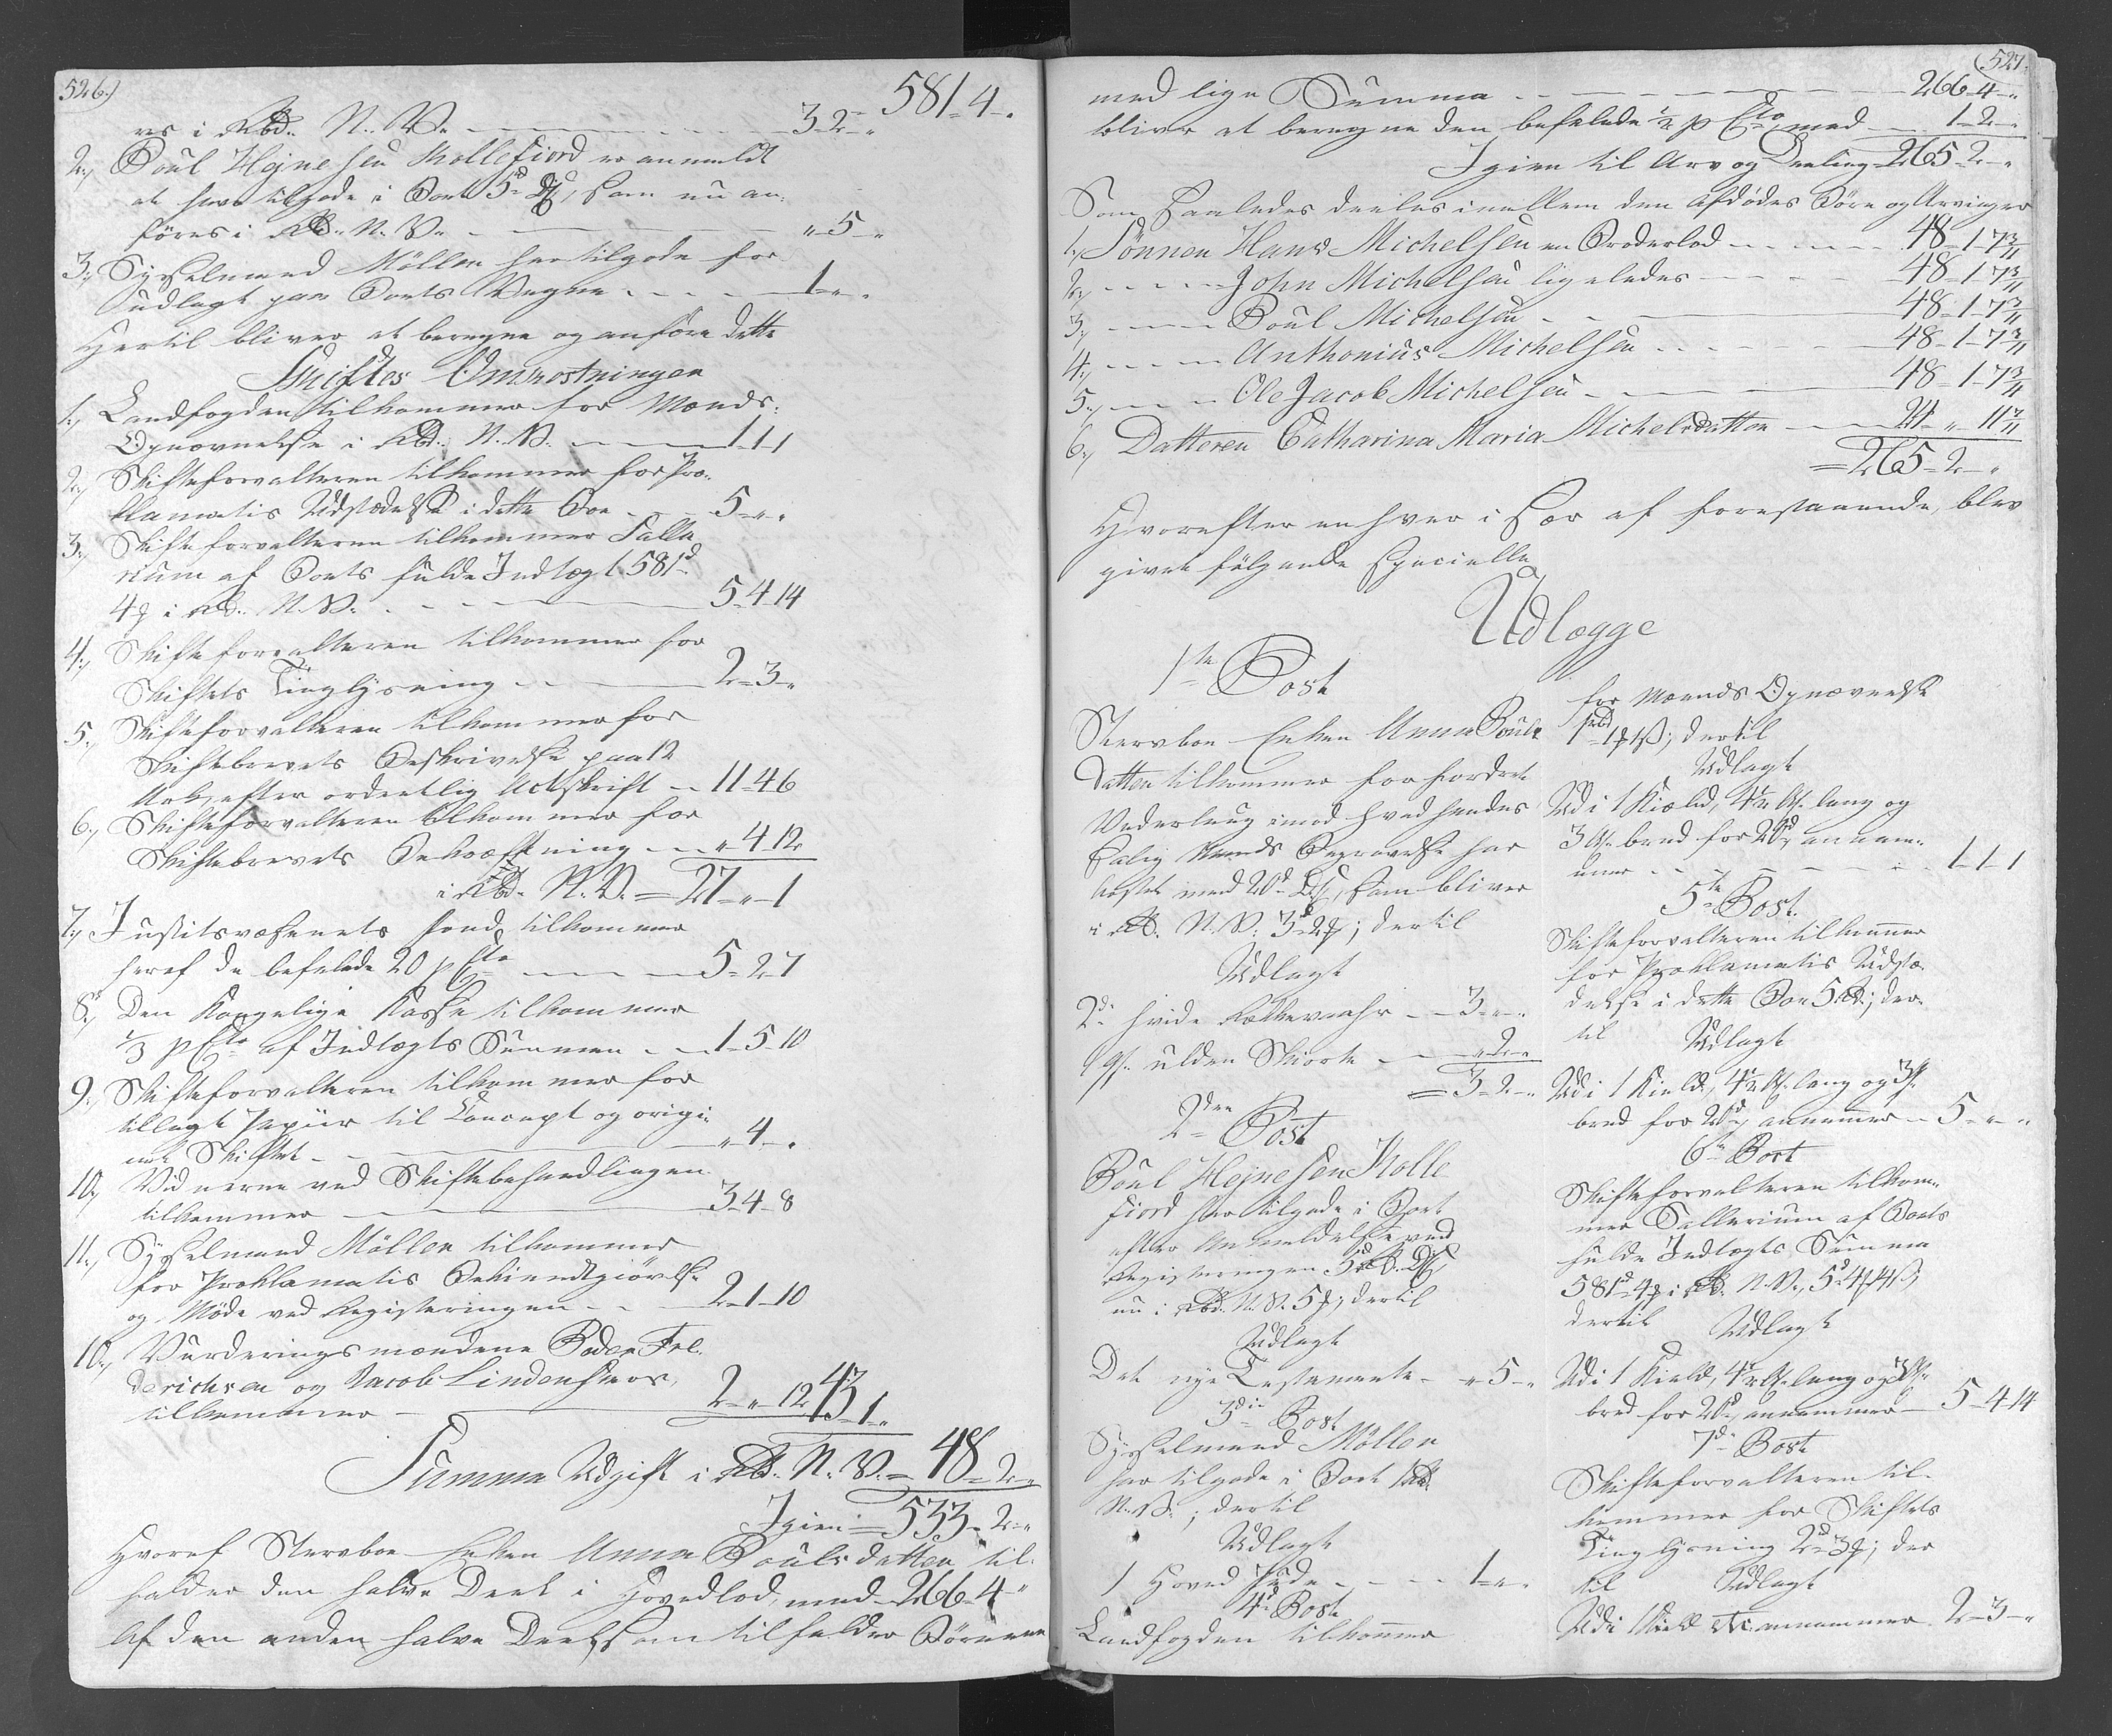 526.)
581-4-.
res i Rbd. N. V. - - - 3-2-"
2., Poul Hejnesen Kollefiord er anmeldt
at have tilgode i Boet 5d DC, som nu an-
føres i Rbd. N. V. - - - "-5-"
3., Sysselmand Möller har tilgode for
Udlagt paa Boets Vegne - - - 1-"-"
Hertil bliver at beregne og anføre dette
Skiftes Omkostninger
1., Landfogden tilkommer for Mænds-
Opnævnelse i Rbd. N. V. - - - 1-1-1
2., Skifteforvalteren tilkommer for Pro-
klamatis Udstædelse i dette Boe - - 5-"-"
3., Skifteforvalteren tilkommer Salla-
rium af Boets fulde Indlæg 581d
4ß i Rbd. N. V. - - - 5-4-14
4., Skifteforvalteren tilkommer for
Skiftets Tinglysning - - - 2-3-"
5., Skifteforvalteren tilkommer for
Skiftebrevets Beskrivelse paa 12
Ark, efter ordentlig Actskrift - 11-4-6
6., Skifteforvalteren tilkommer for
Skiftebrevets Bekræftning - - "-4-12
i Rbd. N. V. = 27-"-1
7., Justitsvæsenets Fond tilkommer
heraf de befalede 20 p Cto - - - 5-2-7
8., Den Kongelige Kasse tilkommer
1/3 p Cto af Indlægts Summen - - 1-5-10
9., Skifteforvalteren tilkommer for
tillagt Papiir til Concept og origi-
nal Skiftet - - - "-4-"
10., Vidnerne ved Skiftebehandlingen
tilkommer - - - 3-4-8
11., Sysselmand Möller tilkommer
for Proklamatis Bekiendtgiørelse
og Møde ved Registeringen - - 2-1-10
10., Vurderingsmændene
Jacob Lindenskov,
tilkommer - - - 2-"-12 43-1-"
Summa Udgift i Rbd. N. V. = 48-2-"
Igien = 533-2-"
Hvoraf Stervboe Enken Anna Poulsdatter til-
falder den halve Deel i Hovedlod, med 266-4-"
Af den anden halve Deel som tilfalder Børnene
527.
med lige Summa - - - 266-4-"
bliver at beregne den befalede 1/2 p Cto med - 1-2-"
Igien til Arv og Deeling 265-2-"
Som Saaledes deeles imellem den Afdødes Børn og Arvinger
1., Sönnen Hans Michelsen en Broderlod - - - 48-1-7 3/11
2., - - - John Michelsen ligeledes - - - 48-1-7 3/11
3., - - - Poul Michelsen - - - 48-1-7 3/11
4., - - - Anthonius Michelsen - - - 48-1-7 3/11
5., - - - Ole Jacob Michelsen - - - 48-1-7 3/11
6., Datteren Catharina Maria Michelsdatter - - 24-"-11 7/11
= 265-2-"
Hvorefter enhver i Sær af forestaaende, blev
givet følgende specielle
Udlægge
1te Post
Stervboe Enken Anna Pouls
Datter tilkommer for fordret
Vederlaug imod hvad hendes
Salig Mands Begravelse har
kostet med 20d DC, som bliver
i Rbd. N. V. 3d 2ß; dertil
Udlagt
2d. hvide - - 3-"-"
1 st. ulden Skiorte - - "-2-"
= 3-2-"
2den Post
Poul Hejnesen Kolle-
fiord har tilgode i Boet
efter Anmeldelse ved
Registeringen 5 Rbd. DC,
nu i Rbd. N. V. 5ß; dertil
Udlagt
Det nye Testamente - "-5-"
3die Post
Sysselmand Möller
har tilgode i Boet 1 Rbd.
N. V.; dertil
Udlagt
1 Hoved - - - 1-"-"
4de Post
Landfogden tilkommer
for Mænds Opnævnelse
1 rbd 1ß 1ß; dertil
Udlagt
Udi 1 Kield, 4½ Al. lang og
3 Al. bred for 20d, annam-
mer - - - 1-1-1
5te Post.
Skifteforvalteren tilkommer
for Proklamatis Udstæ-
delse i dette Boe 5 Rbd.; der-
til
Udlagt
Udi 1 Kield, 4½ Al. lang og 3 Al.
bred for 20d, annammer - 5-"-"
6te Post
Skifteforvalteren tilkom-
mer Sallarium af Boets
fulde Indlægts Summa
581d 4ß i Rbd. N. V., 5d 4ß 14ß,
dertil
Udlagt
Udi 1 Kield, 4½ Al. lang og 3 Al.
bred for 20d, annammer - 5-4-14
7de Post
Skifteforvalteren til-
kommer for Skiftets
Tinglysning 2d 3ß; der-
til
Udlagt
Udi 1 Kield &c. annammer 2-3-"